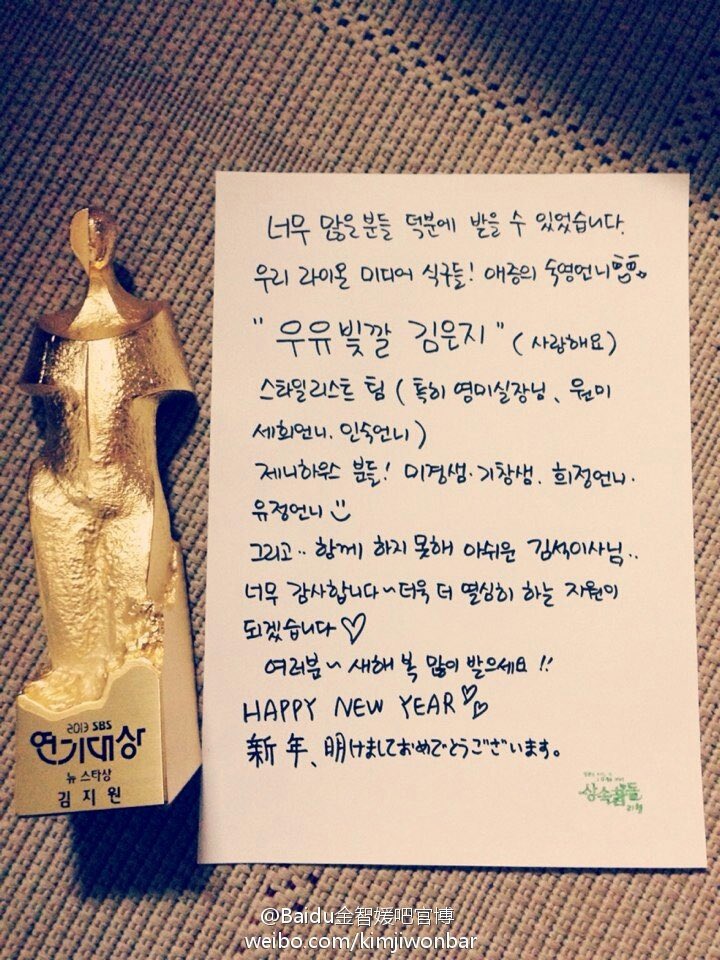 너무 많을분들 덕분에 받을 수 있었습니다.
우리 라이온 미디어 식구들! 애증의 숙영언니
"우유빛깔 김은지" (사랑해요)
스타일리스트 팀 (특히 영미실장님、원미
세희언니. 인숙언니)
제니하우스 분들! 미경샘·기창샘. 희정언니·
유정언니
그리고.. 함께 하지 못해 아쉬운 김석이사님..
너무 감사합니다~더욱 더 열심히 하는 지원이
되겠습니다♡
여러분~ 새해 복 많이 받으세요!!
HAPPY NEW YEAR♡♡
新年、明けましておめでとうございます。
상속者들
2013 SBS
연기대상
뉴 스타상
김지원
@Baidu金智媛吧官博
weibo.com/kimjiwonbar